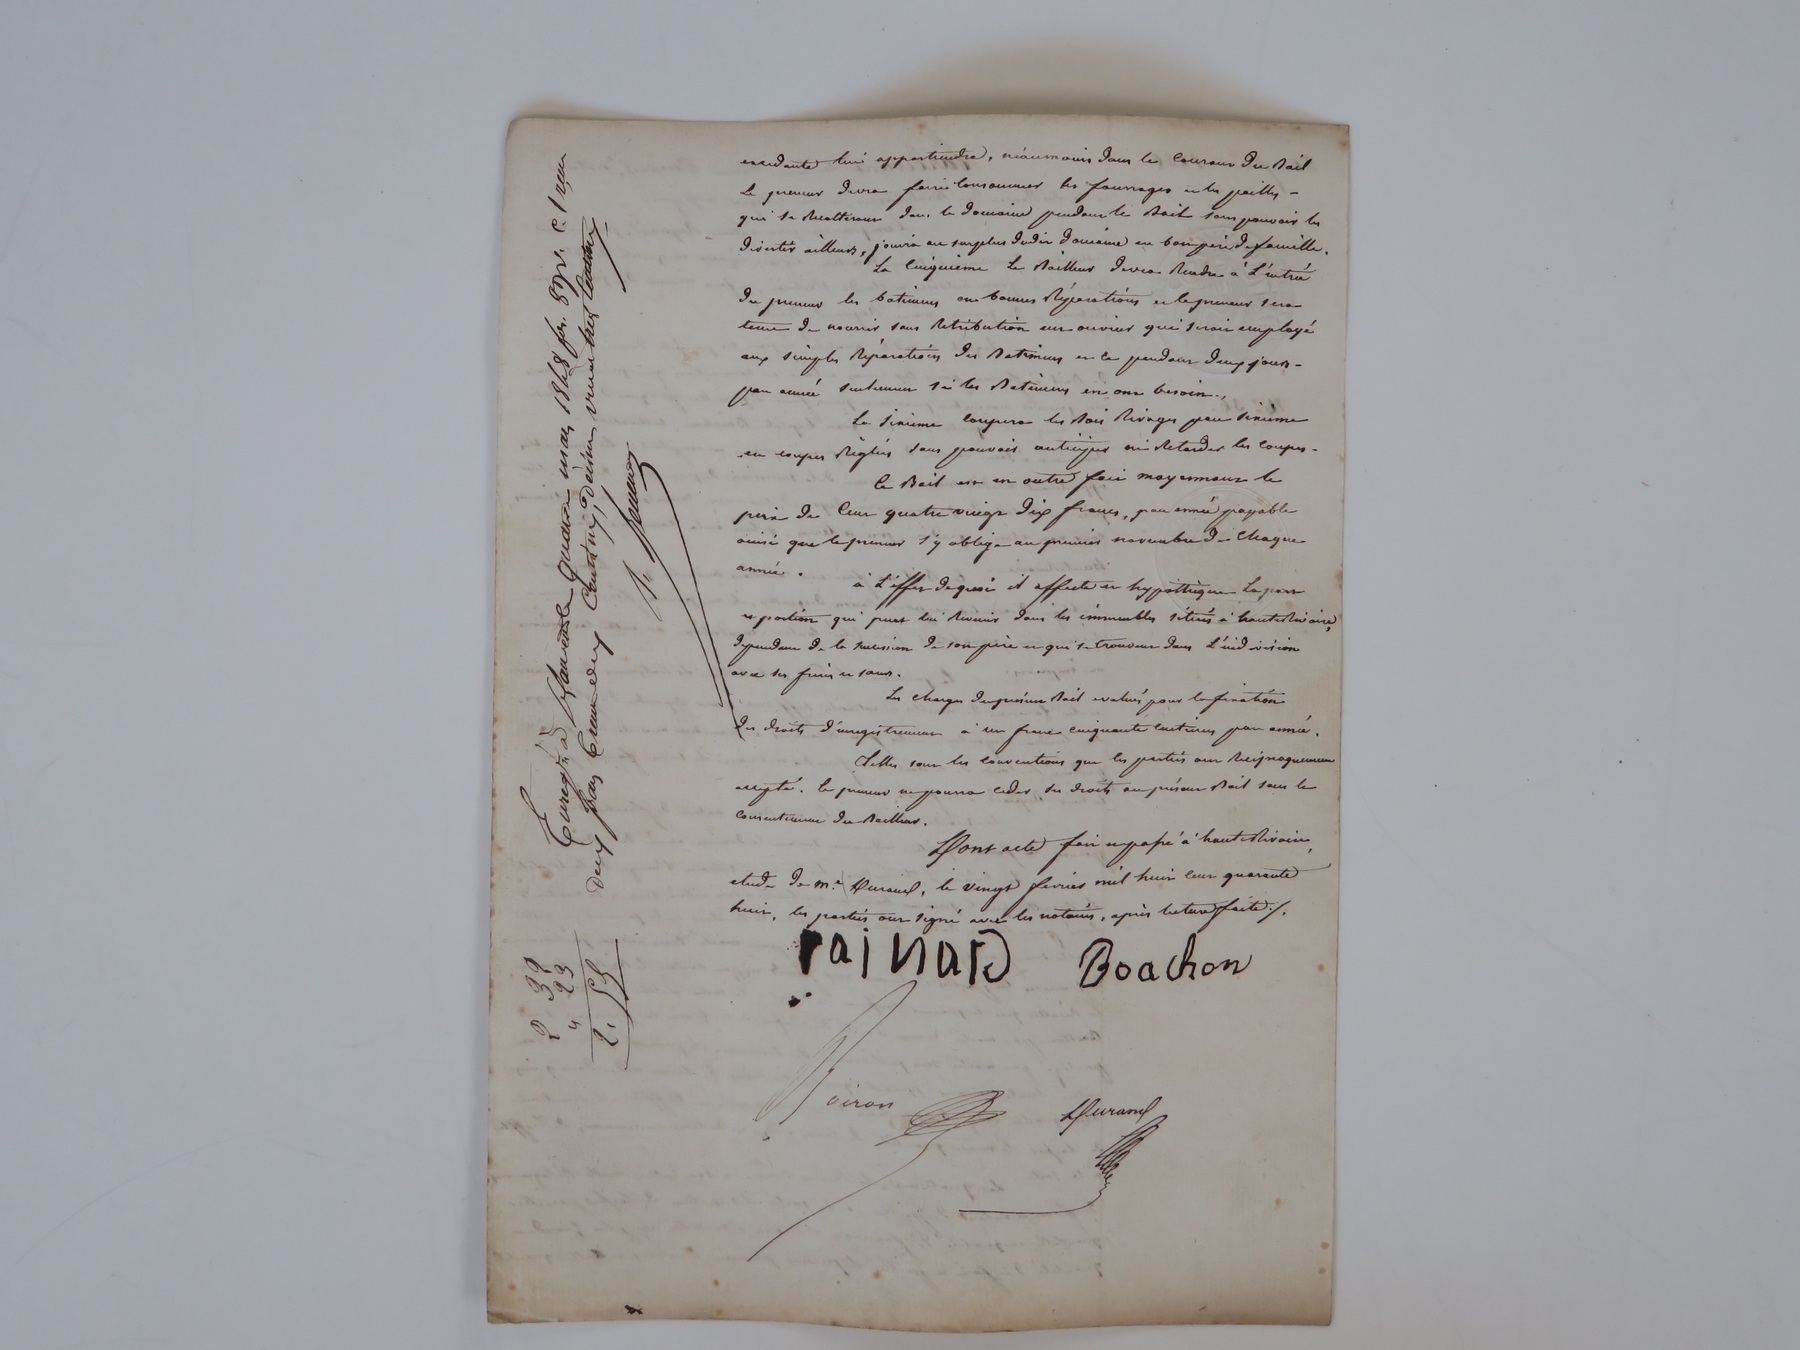 lui appartiendra, néanmoins dans le courant du Bail
Le preneur devra faire consommer les fourrages et les pailles -
qui se Récolteront dans le domaine pendant le Bail sans pouvoir les
divertir ailleurs, jouira au surplus dudit domaine en bon père de famille.
Le Cinquième Le Bailleur devra Rendre à L'entrée
du preneur les batimens en bonnes Réparations et le preneur sera
tenu de nourrir sans Rétribution un ouvrier qui serait employé
aux simples Réparations des Batimens et ce pendant deux jours -
par année seulement si les Batimens en ont besoin.
Le sixième coupera les Bois Rivages par sixième
en coupes Réglées sans pouvoir anticiper ni Retarder les coupes -
Ce Bail est en outre fait moyennant le
prix de Cent quatre vingt dix francs, par année payable
ainsi que le preneur s'y oblige au premier novembre de Chaque
année.
à L'éffet de quoi il affecte et hypothèque La part
et portion qui peut lui Revenir dans les immeubles situés à hauteRivoire,
dépendant de la succession de son père et qui se trouvent dans L'indivision
avec ses frères et sœurs.
Les charges du présent Bail évalués pour la fixation
des droits d'enregistrement à un franc cinquante centimes par année.
Telles sont les conventions que les parties ont Réciproquement
accepté. Le preneur ne pourra céder ses droits au présent Bail sans le
consentement du Bailleur.
Dont acte fait et passé à hauteRivoire,
étude de me Durand, le vingt février mil huit cent quarante
huit, les parties ont signé avec les notaires, après lecture faite ./.
rainard Boachon
Voiron Durand
Enregé à quatre mars 1848 fo. 89 vo. c. 1 reçu
deux francs trente neuf Centimes, Décime vingt trois centimes
2 39
" 23
2. 62